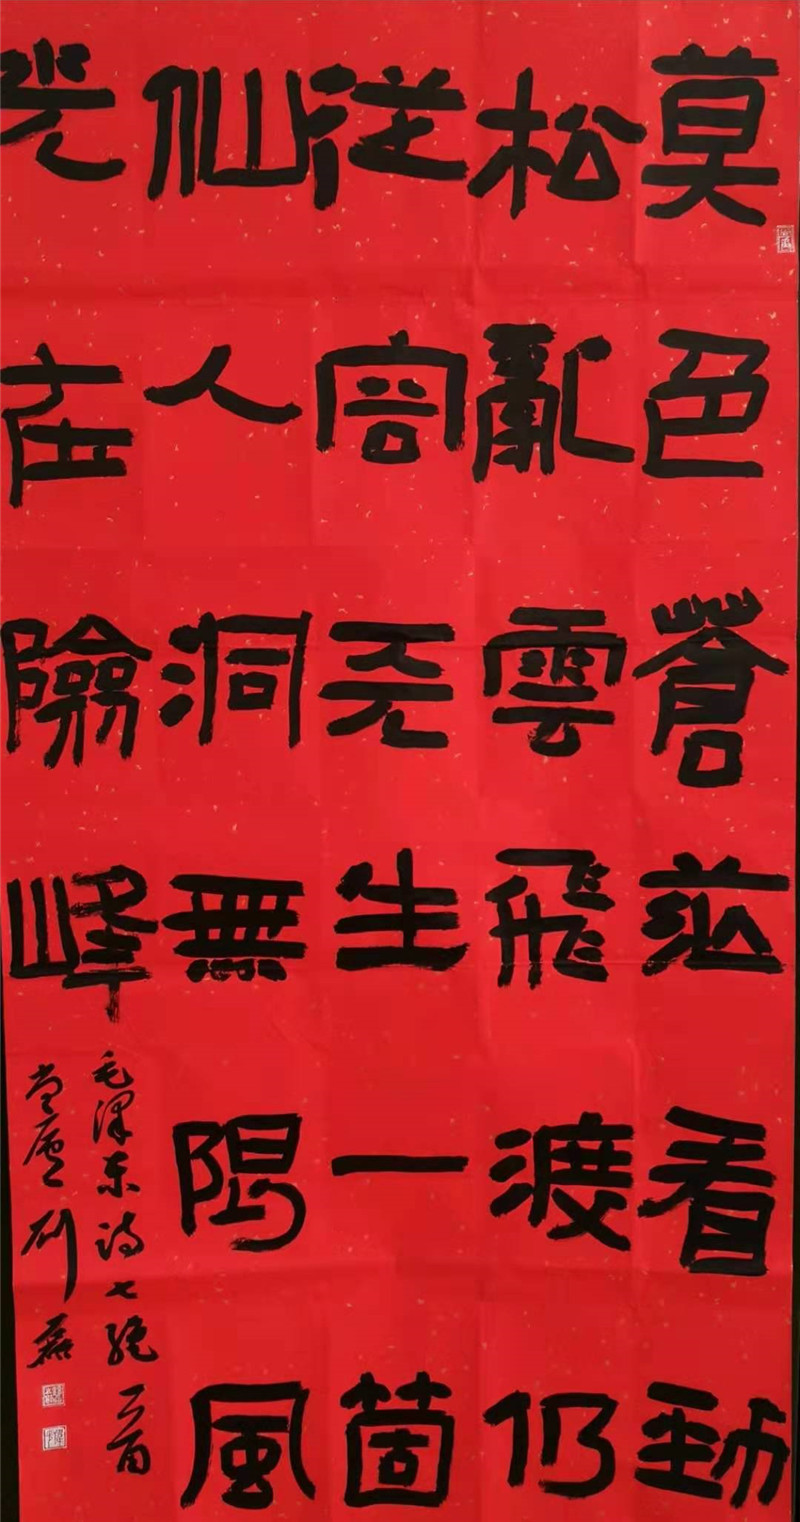 莫色蒼茫看勁
松亂雲飛渡仍
從容天生一箇
仙人洞無限風
光在險峰
毛澤東詩七絕一首